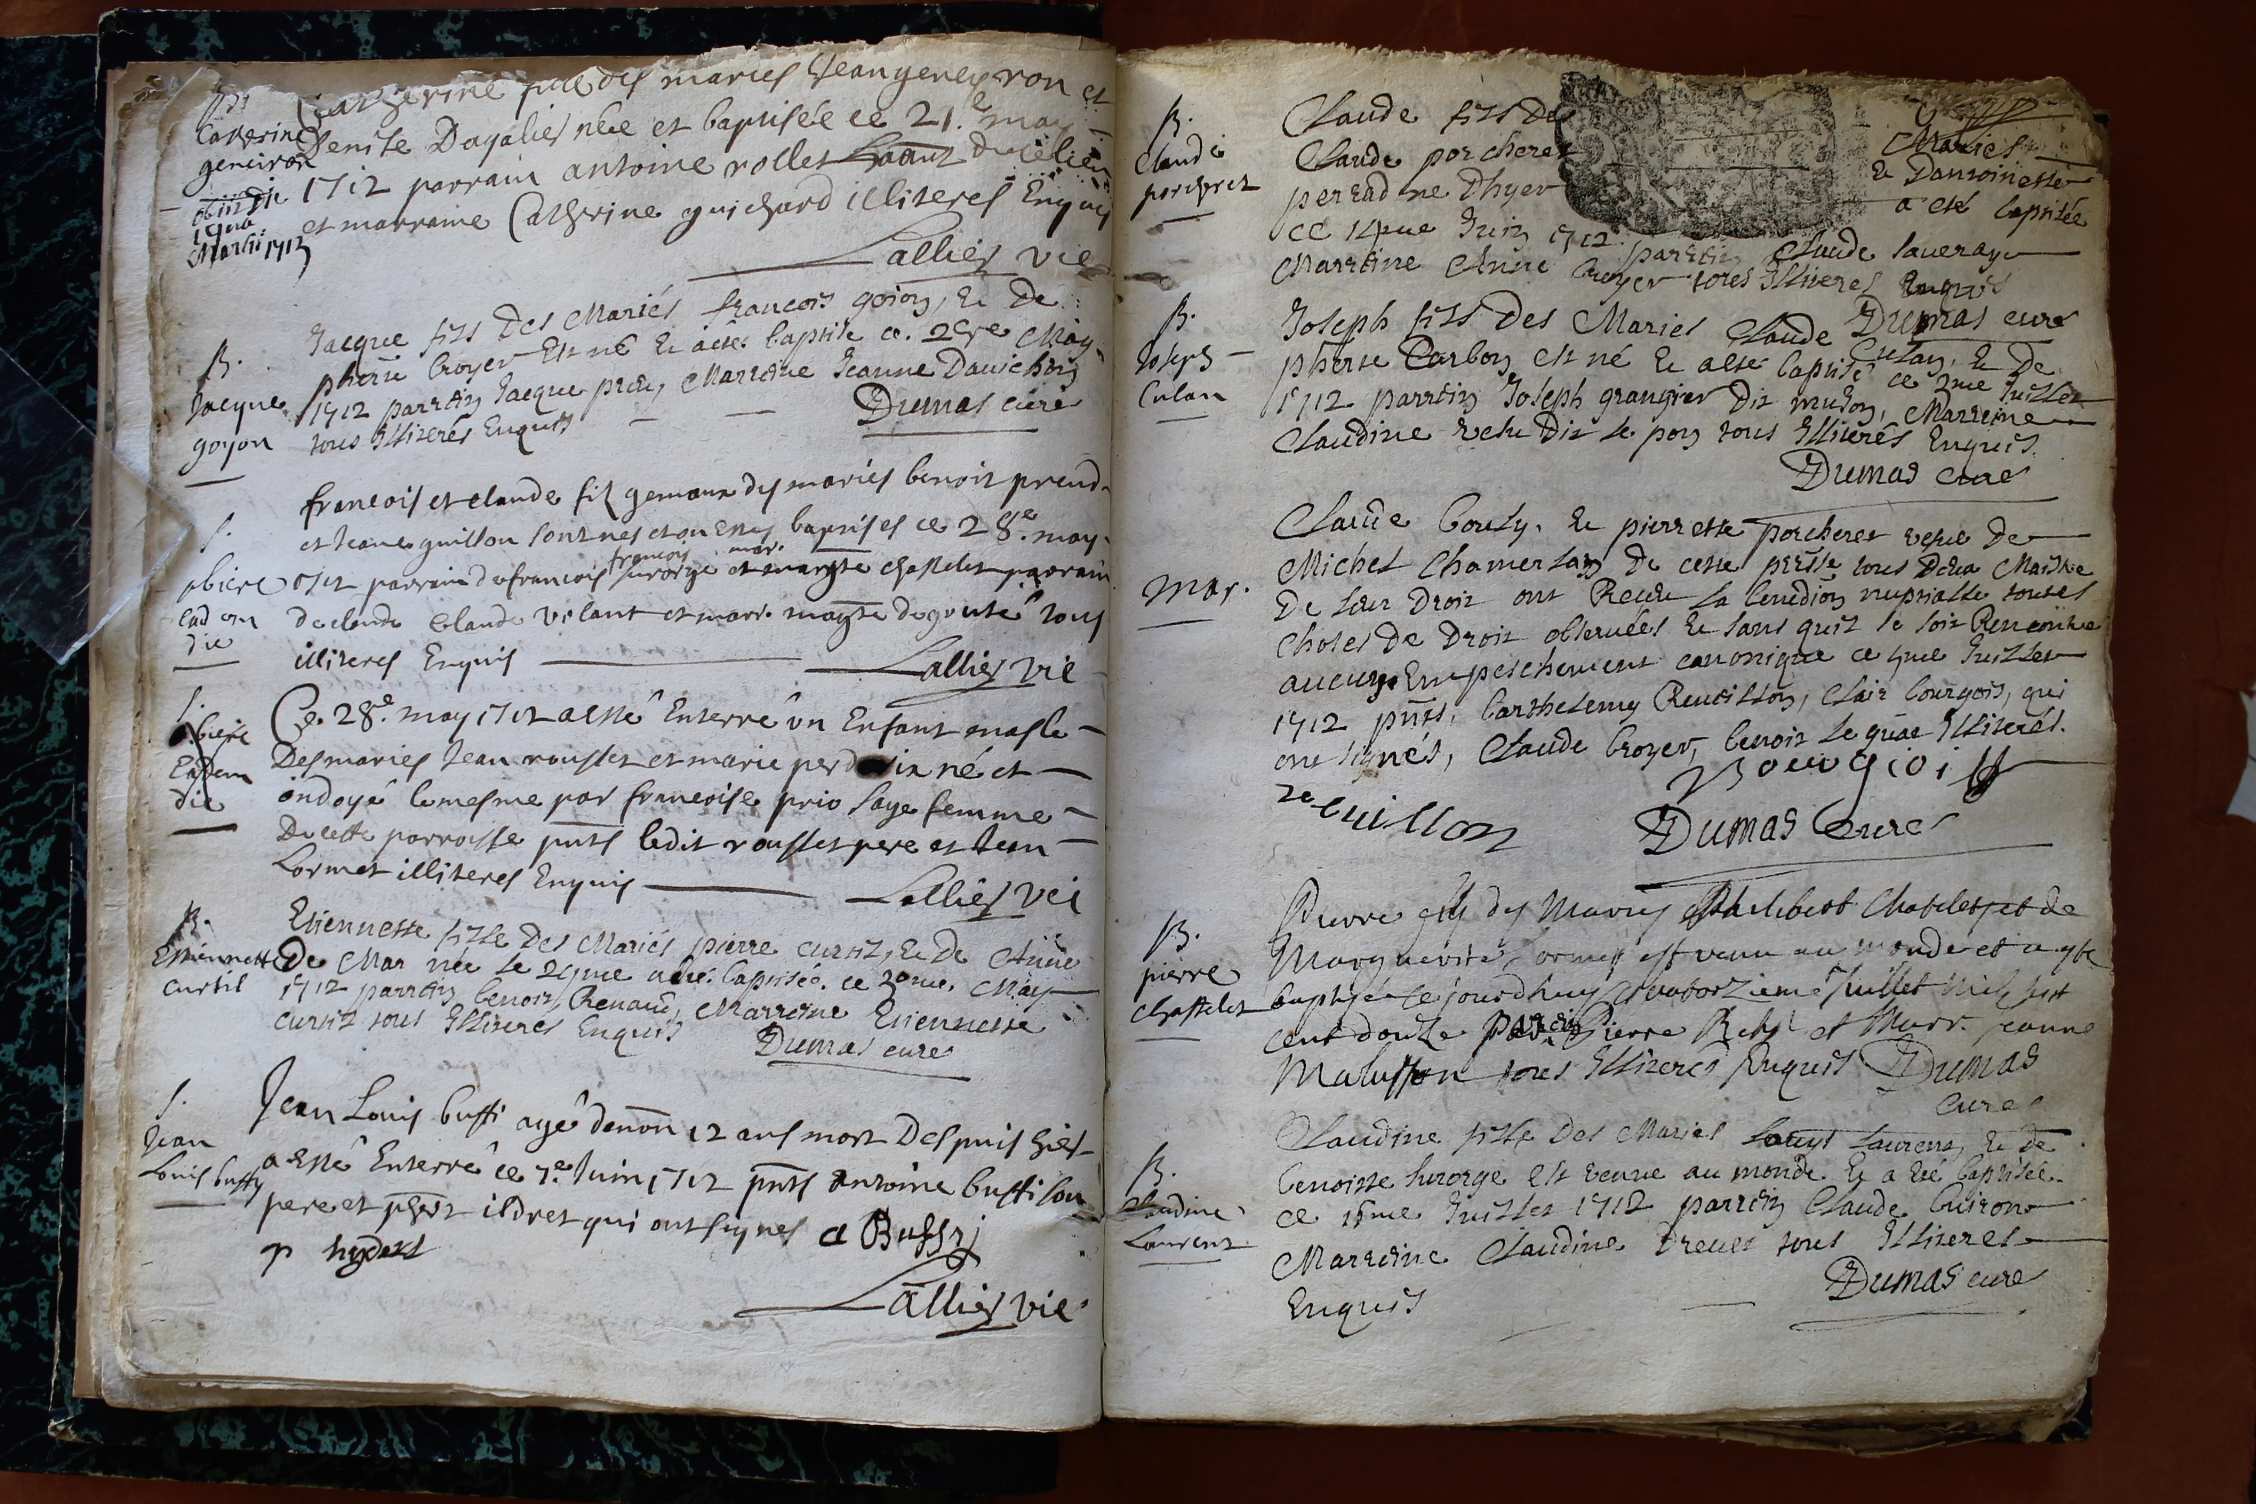 B.
Catherine
geneiron
obiit die
Martii 1713
Catherine fille des maries Jean geneyron et
Denise Dagalier née et baptisée ce 21.e may
1712 parrain antoine rollet habitant de ce lieu
et marraine Catherine guichard illiteres Enquis
Lallier vic
B.
Jacque
goyon
Jacque fils des Mariés francois goion, et De
pherie broyer Est né et a été baptisé ce May
1712 parrein Jacque Marreine Jeanne Dauichon
tous Illiterés Enquis
Dumas curé
S.
obiere
ead em
die
francois et claude filz gemaux des mariés benoit
et Jeane guillon sont nes et baptises ce 28.e may
1712 parrain de francois francois surorge mar. et margte chastelet parrain
de claude Claude Vilant et marr. magte degouté tous
illiteres Enquis
Lallier vic
S.
obiere
Eadem
die
Ce. 28e. may 1712 a esté Enterré un Enfant masle
Des maries Jean rousset et marie né et
ondoyé le mesme par francoise prio sage femme
De cette parroisse pnts ledit rousset pere et Jean
Lormet illiteres Enquis
Lallier vic
B.
Estiennette
curtil
Etiennette fille Des Mariés pierre curtil, et De Anne
De Mar née le 29me a été baptisée ce 30me. May
1712 parrein benoit Renaud, Marreine Etiennette
curtil tous Illiterés Enquis
Dumas curé
S.
Jean
Louis buffy
Jean Louis buffi agé denōn 12 ans mort Despuis hier
a esté Enterré ce 7.e Juin 1712 pnts Antoine buffi son
pere et ildret qui ont signes a Buffi
p hydret
Lallier vic
B.
Claude
porcheret
Claude fils De
Claude porcheret
perrad me Dhyer
Mariés
et Dantoinette
a été baptisée
ce 14me Juin 1712 parrein Claude laueraye
Marreine Anne broyer tous Illiteres Enquis
Dumas curé
B.
Joseph
Culan
Joseph fils Des Mariés Claude Culan, et De
pherie Carbon est né et a été baptisé ce 2me Juillet
1712 parrein Joseph grangier Dit muron, Marreine
Claudine velu Dit le pon tous Illiterés Enquis.
Dumas Curé
mar.
Claude bouly. et pierrette porcheret vefue De
Michel Chamerlan De cette prsse tous Deux Maistre
De leur Droit ont Receu la benedion nuptialle toutes
choses De Droit obseruées et sans quil se soit Rencontré
aucun Empeschement canonique ce Juillet
1712 pnts, barthelemy Reuillon, clair bourgois, qui
ont signés, Claude broyer, benoit Illiterés.
Bourgiois
reuillon
Dumas Curé
B.
pierre
Chastelet
Pierre fils des Mariés Philibert Chatelet et de
Marguerite Lormet est venu au monde et a este
baptisé ce jourdhuy quatorzieme Juillet mil sept
cent douze parein Pierre et Marr. Jeanne
Malusson tous Illiterés Enquis Dumas
curé
B.
Claudine
Laurent
Claudine fille Des Mariés Louys Laurent, et de
benoiste surorge est venue au monde et a été baptisée
ce 15me Juillet 1712 parrein Claude Cuiron
Marreine Claudine Dreuet tous Illiteres
Enquis
Dumas curé